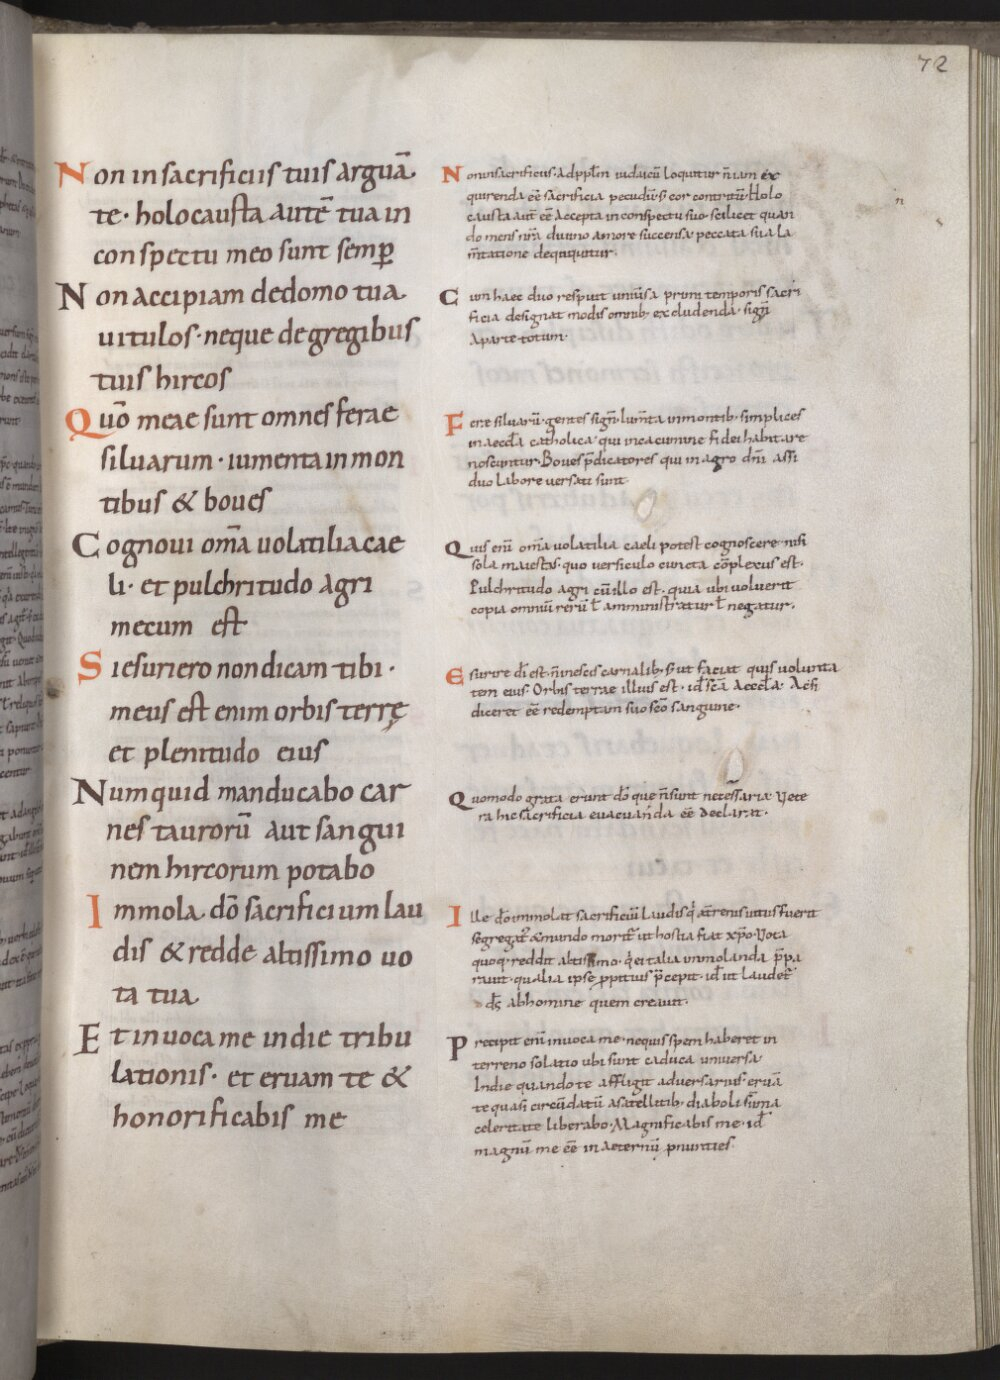 72
Non in sacrificiis tuis arguā
te· holocausta autē tua in
conspectu meo sunt semꝑ
Non accipiam de domo tua
uitulos· neque de gregibus
tuis hircos
Quō meae sunt omnes ferae
siluarum· iumenta in mon
tibus & boues
Cognoui om̄a uolatilia cae
li· et pulchritudo agri
mecum est
Si esuriero non dicam tibi·
meus est enim orbis terrę
et plenitudo eius
Numquid manducabo car
nes taurorū aut sangui
nem hircorum potabo
Immola dō sacrificium lau
dis & redde altissimo uo
ta tua
Et inuoca me in die tribu
lationis· et eruam te &
honorificabis me
Non in sacrificiis· Ad pplm iudaicū loquitur n̄ iam ex
quirenda eē sacrificia pecudū· s; cor contritū· Holo
causta aut̄ eē accepta in conspectu suo· scilicet quan
do mens nr̄a diuino amore succensa peccata sua la
m̄tatione
Cum haec duo respuit uniuersa primi temporis sacri
ficia designat modis omnib; excludenda· sign̄
a parte totum·
Fere siluarū· gentes sign̄· Ium̄ta in montib· simplices
in aeccl̄a catholica· qui in cacumine fidei habitare
noscuntur· Boues p̄dicatores qui in agro dn̄i assi
duo labore uersati sunt·
Quis enī om̄a uolatilia caeli potest cognoscere· nisi
sola maiestas· quo uersiculo cuncta cōplexus est·
Pulchritudo agri cū illo est· quia ubi uoluerit
copia omniū rerū ł amministratur ł negatur·
Esurire dī est· n̄ in escis carnalib· s; ut faciat quis uolunta
tem eius· Orbis terrae illius est· id s̄cā aeccl̄a· Ac si
diceret eē redemptam suo sc̄o sanguine·
Quomodo grata erunt dō que n̄ sunt necessaria· Vete
ra hic sacrificia euacuanda eē declarat·
Ille dō immolat sacrificiū laudis qͥ a terrenis uitiis fuerit
segregat᷒ & mundo morit᷒ ut hostia fiat xp̄o· Vota
quoq; reddit altissimo· qͥ ei talia immolanda p̄pa
rauit· qualia ipse ꝓpitius p̄cepit· id ut laudet᷒
ds̄ ab homine quem creauit·
Precipit enī inuoca me· ne quis spem haberet in
terreno solatio ubi sunt caduca uniuersa·
In die quando te affligit aduersarius· eruā
te quasi circūdatū a satellitib; diaboli sūma
celeritate liberabo· Magnificabis me· id
magnū me eē in aeternū pnunties·